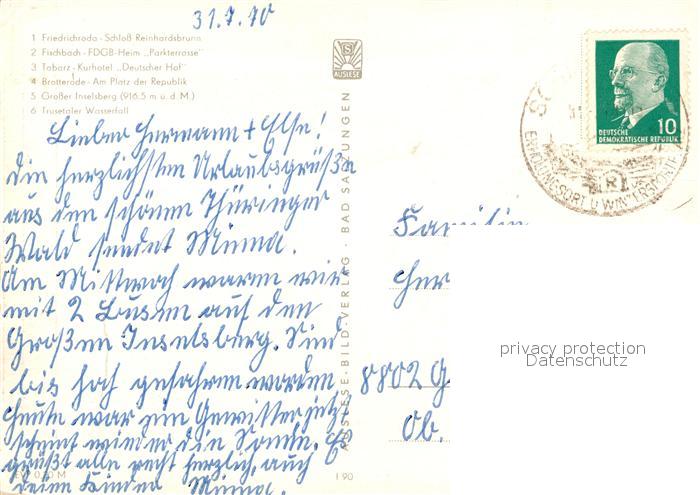 31.7.70
1 Friedrichroda - Schloß Reinhardsbrunn
2 Fischbach - FDGB-Heim „Parkterrasse"
3 Tabarz - Kurhotel „Deutscher Hof"
4 Brotterode - Am Platz der Republik
5 Großer Inselsberg (916,5 m ü. d. M.)
6 Trusetaler Wasserfall
AUSLESE
AUSLESE-BILD-VERLAG · BAD SALZUNGEN
10
DEUTSCHE
DEMOKRATISCHE REPUBLIK
ERHOLUNGSORT U WINTERSPORT
Lieber Hermann + Else!
Die herzlichsten Urlaubsgrüße
aus den schönen Thüringer
Wald sendet Minna.
Am Mittwoch waren wir
mit 2 Bussen auf den
Großen Inselsberg. Sind
bis hoch gefahren worden
Heute war ein Gewitter jetzt
scheint wieder die Sonne. Es
grüßt alle recht herzlich, auch
deine Kinder Minna.
Familie
Her
8802 G
Ob.
privacy protection
Datenschutz
I 90